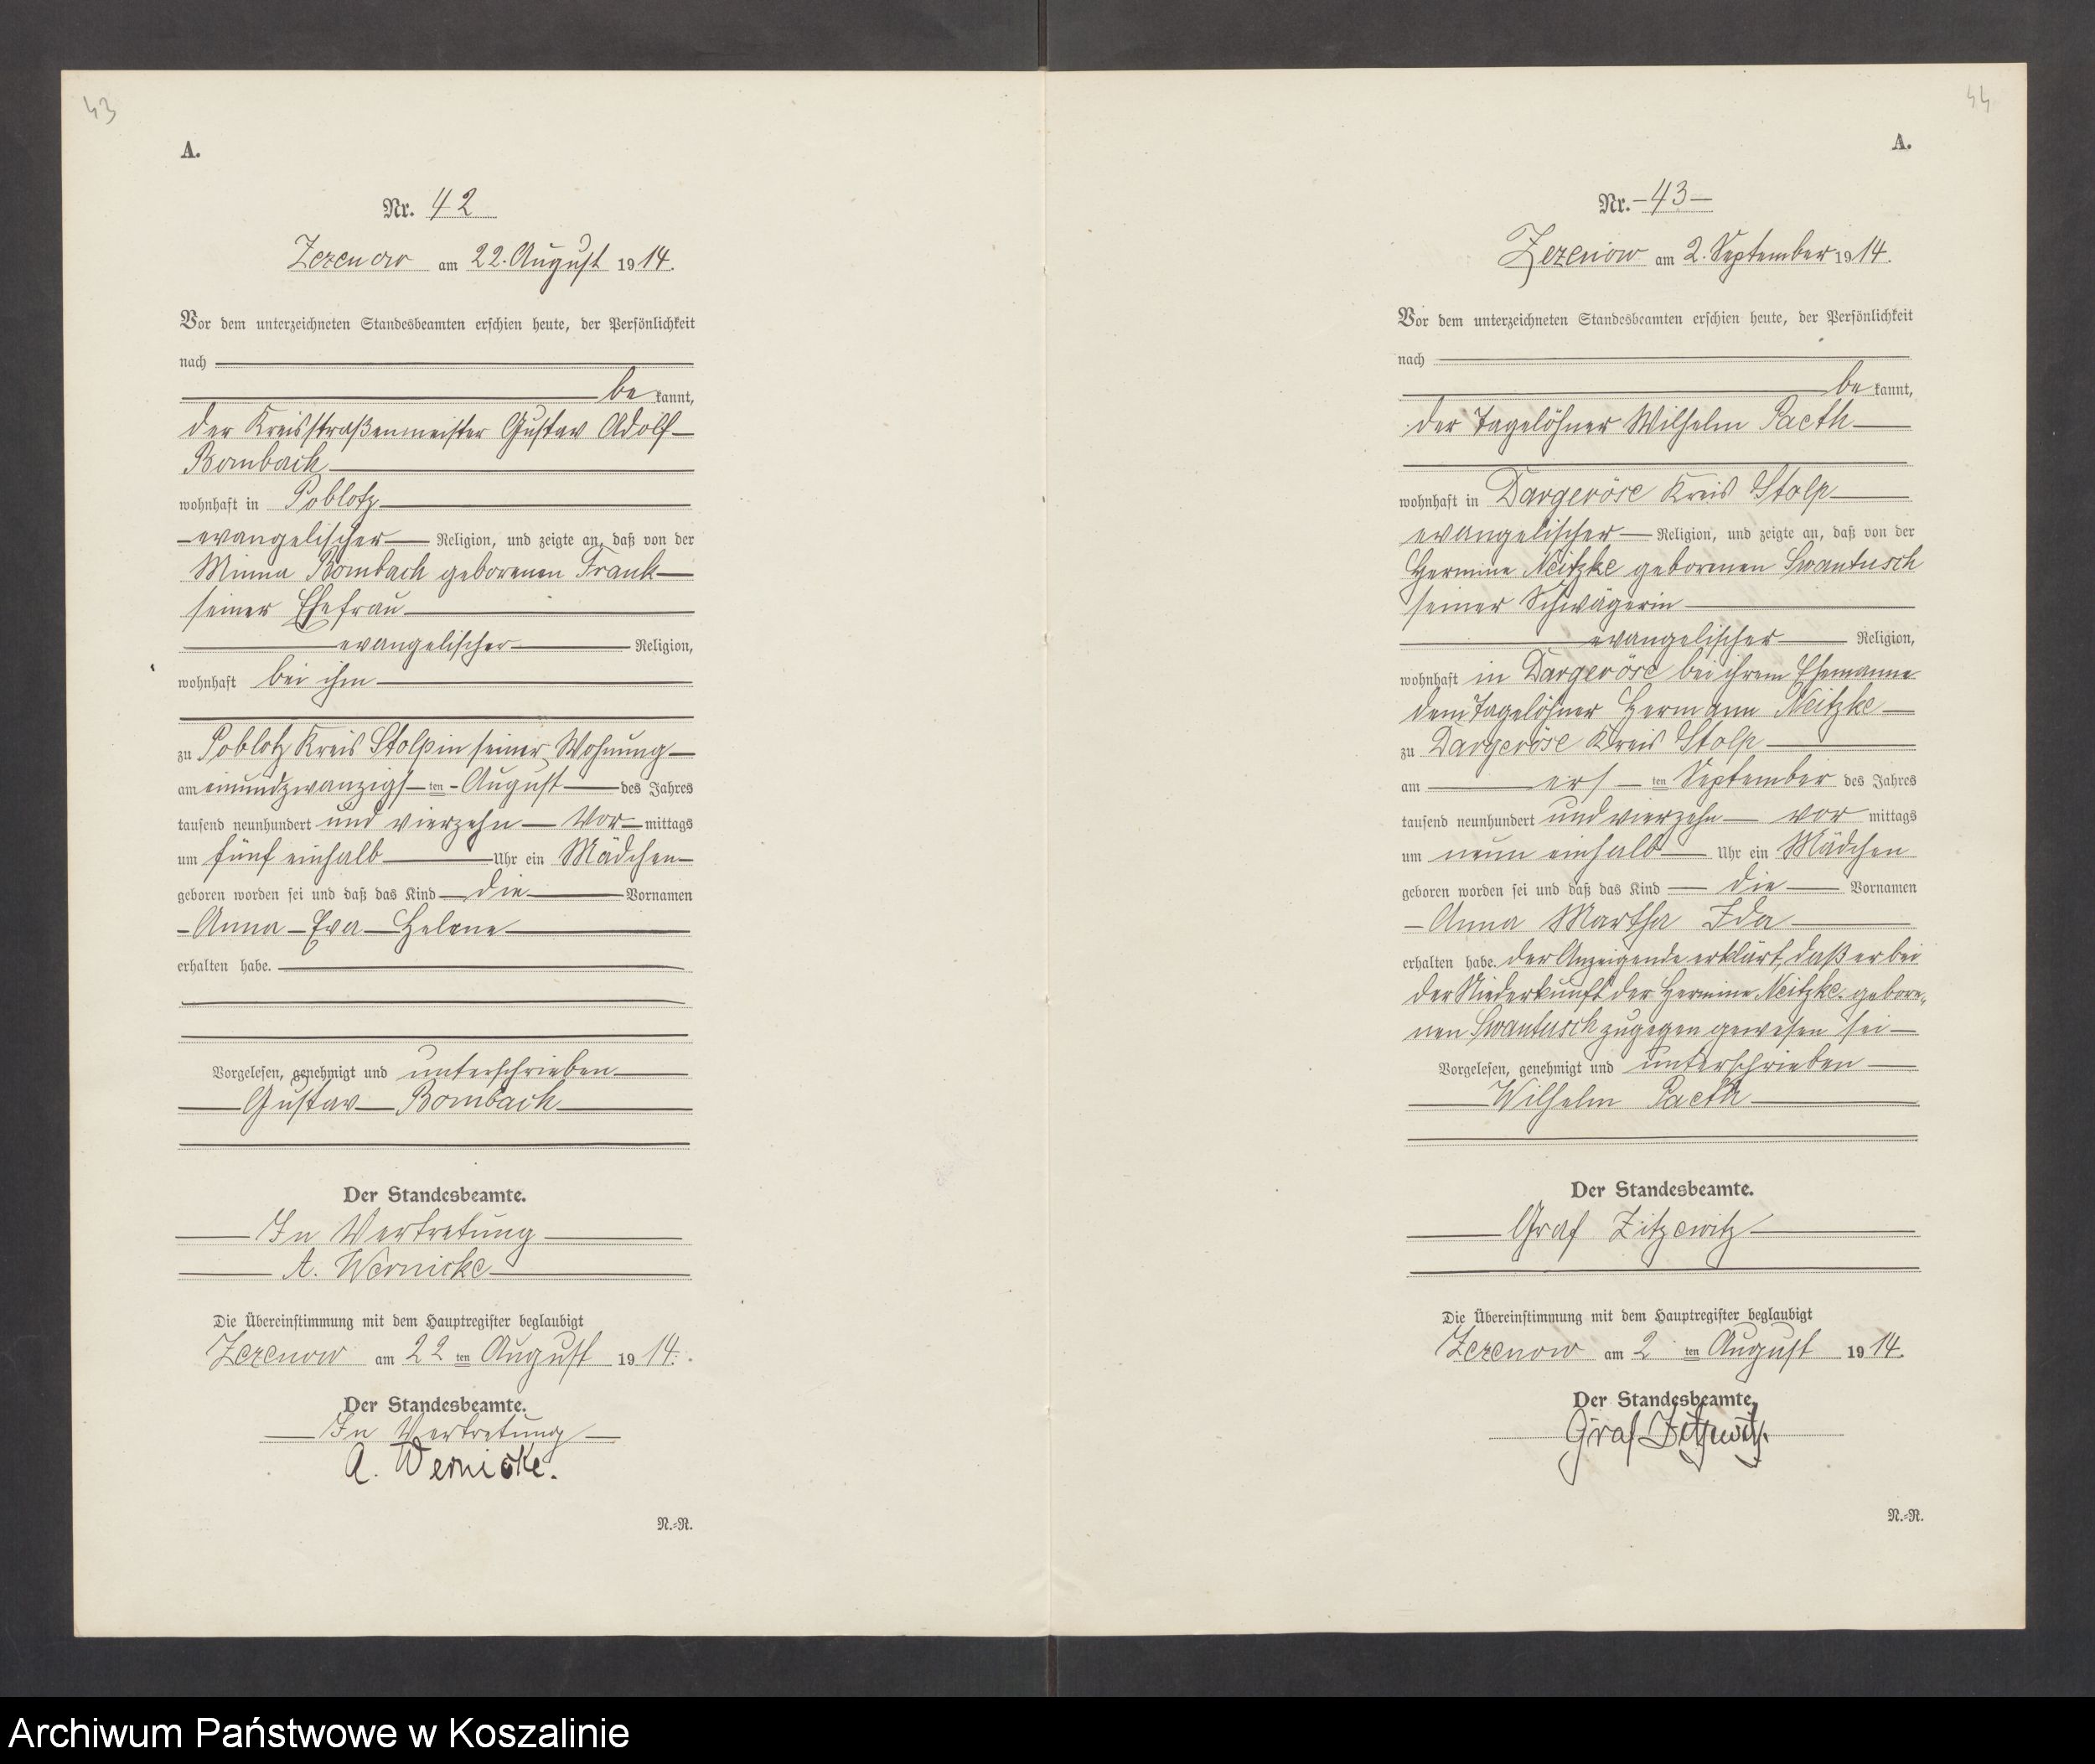 43
A.
Nr. 42
Zezenow am 22. August 1914.
Vor dem unterzeichneten Standesbeamten erschien heute, der Persönlichkeit
nach
be kannt,
der Kreisstraßenmeister Gustav Adolf
Bombach
wohnhaft in Poblotz
evangelischer Religion, und zeigte an, daß von der
Minna Bombach geborenen Frank
seiner Ehefrau
evangelischer Religion,
wohnhaft bei ihm
zu Poblotz Kreis Stolp in seiner Wohnung
am einundzwanzigs ten August des Jahres
tausend neunhundert und vierzehn Vor mittags
um fünf einhalb Uhr ein Mädchen
geboren worden sei und daß das Kind die Vornamen
Anna Eva Helene
erhalten habe.
Vorgelesen, genehmigt und unterschrieben
Gustav Bombach
Der Standesbeamte.
In Vertretung
A. Wernicke
Die Übereinstimmung mit dem Hauptregister beglaubigt
Zezenow am 22 ten August 1914.
Der Standesbeamte.
In Vertretung
A. Wernicke.
N.=R.
44
A.
Nr. 43
Zezenow am 2. September 1914.
Vor dem unterzeichneten Standesbeamten erschien heute, der Persönlichkeit
nach
be kannt,
der Tagelöhner Wilhelm Paeth
wohnhaft in Dargeröse Kreis Stolp
evangelischer Religion, und zeigte an, daß von der
Hermine Neitzke geborenen Swantusch
seiner Schwägerin
evangelischer Religion,
wohnhaft in Dargeröse bei ihrem Ehemanne
dem Tagelöhner Hermann Neitzke
zu Dargeröse Kreis Stolp
am ers ten September des Jahres
tausend neunhundert und vierzehn vor mittags
um neun einhalb Uhr ein Mädchen
geboren worden sei und daß das Kind die Vornamen
Anna Martha Ida
erhalten habe. Der Anzeigende erklärt, daß er bei
der Niederkunft der Hermine Neitzke gebore-
nen Swantusch zugegen gewesen sei
Vorgelesen, genehmigt und unterschrieben
Wilhelm Paeth
Der Standesbeamte.
Graf Zitzewitz
Die Übereinstimmung mit dem Hauptregister beglaubigt
Zezenow am 2 ten August 1914.
Der Standesbeamte.
Graf Zitzewitz.
N.=R.
Archiwum Państwowe w Koszalinie